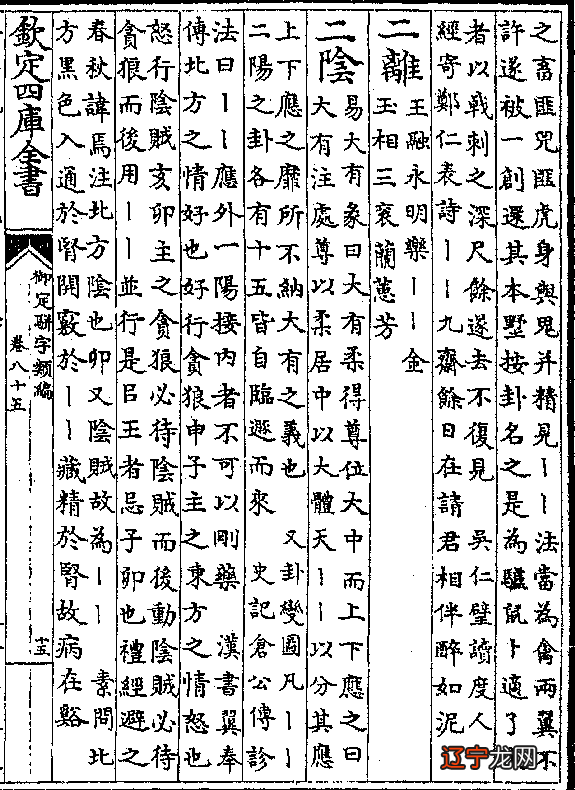 之畜匪兕匪虎身與鬼并精見丨丨法當為禽兩翼不
許遂被一創還其本墅按卦名之是為驢䑕卜適了
者以戟刺之深尺餘遂去不復見　吳仁璧讀度人
經寄鄭仁表詩丨丨九齋餘日在請君相伴醉如泥
二離
王融永明樂丨丨金
玉相三衮蘭蕙芳
二陰
易大有彖曰大有柔得尊位大中而上下應之曰
大有注處尊以柔居中以大體天丨丨以分其應
上下應之靡所不納大有之義也　又卦變圖凡丨丨
二陽之卦各有十五皆自臨遯而來　史記倉公傳診
法曰丨丨應外一陽接内者不可以剛藥　漢書翼奉
傳北方之情好也好行貪狼申子主之東方之情怒也
怒行陰賊亥卯主之貪狼必待陰賊而後動陰賊必待
貪狼而後用丨丨並行是㠯王者忌子卯也禮經避之
春秋諱焉注北方陰也卯又陰賊故為丨丨　素問北
方黑色入通於腎開竅於丨丨藏精於腎故病在谿
欽定四庫全書
御定駢字類編
卷八十五
十五
辽宁龙网